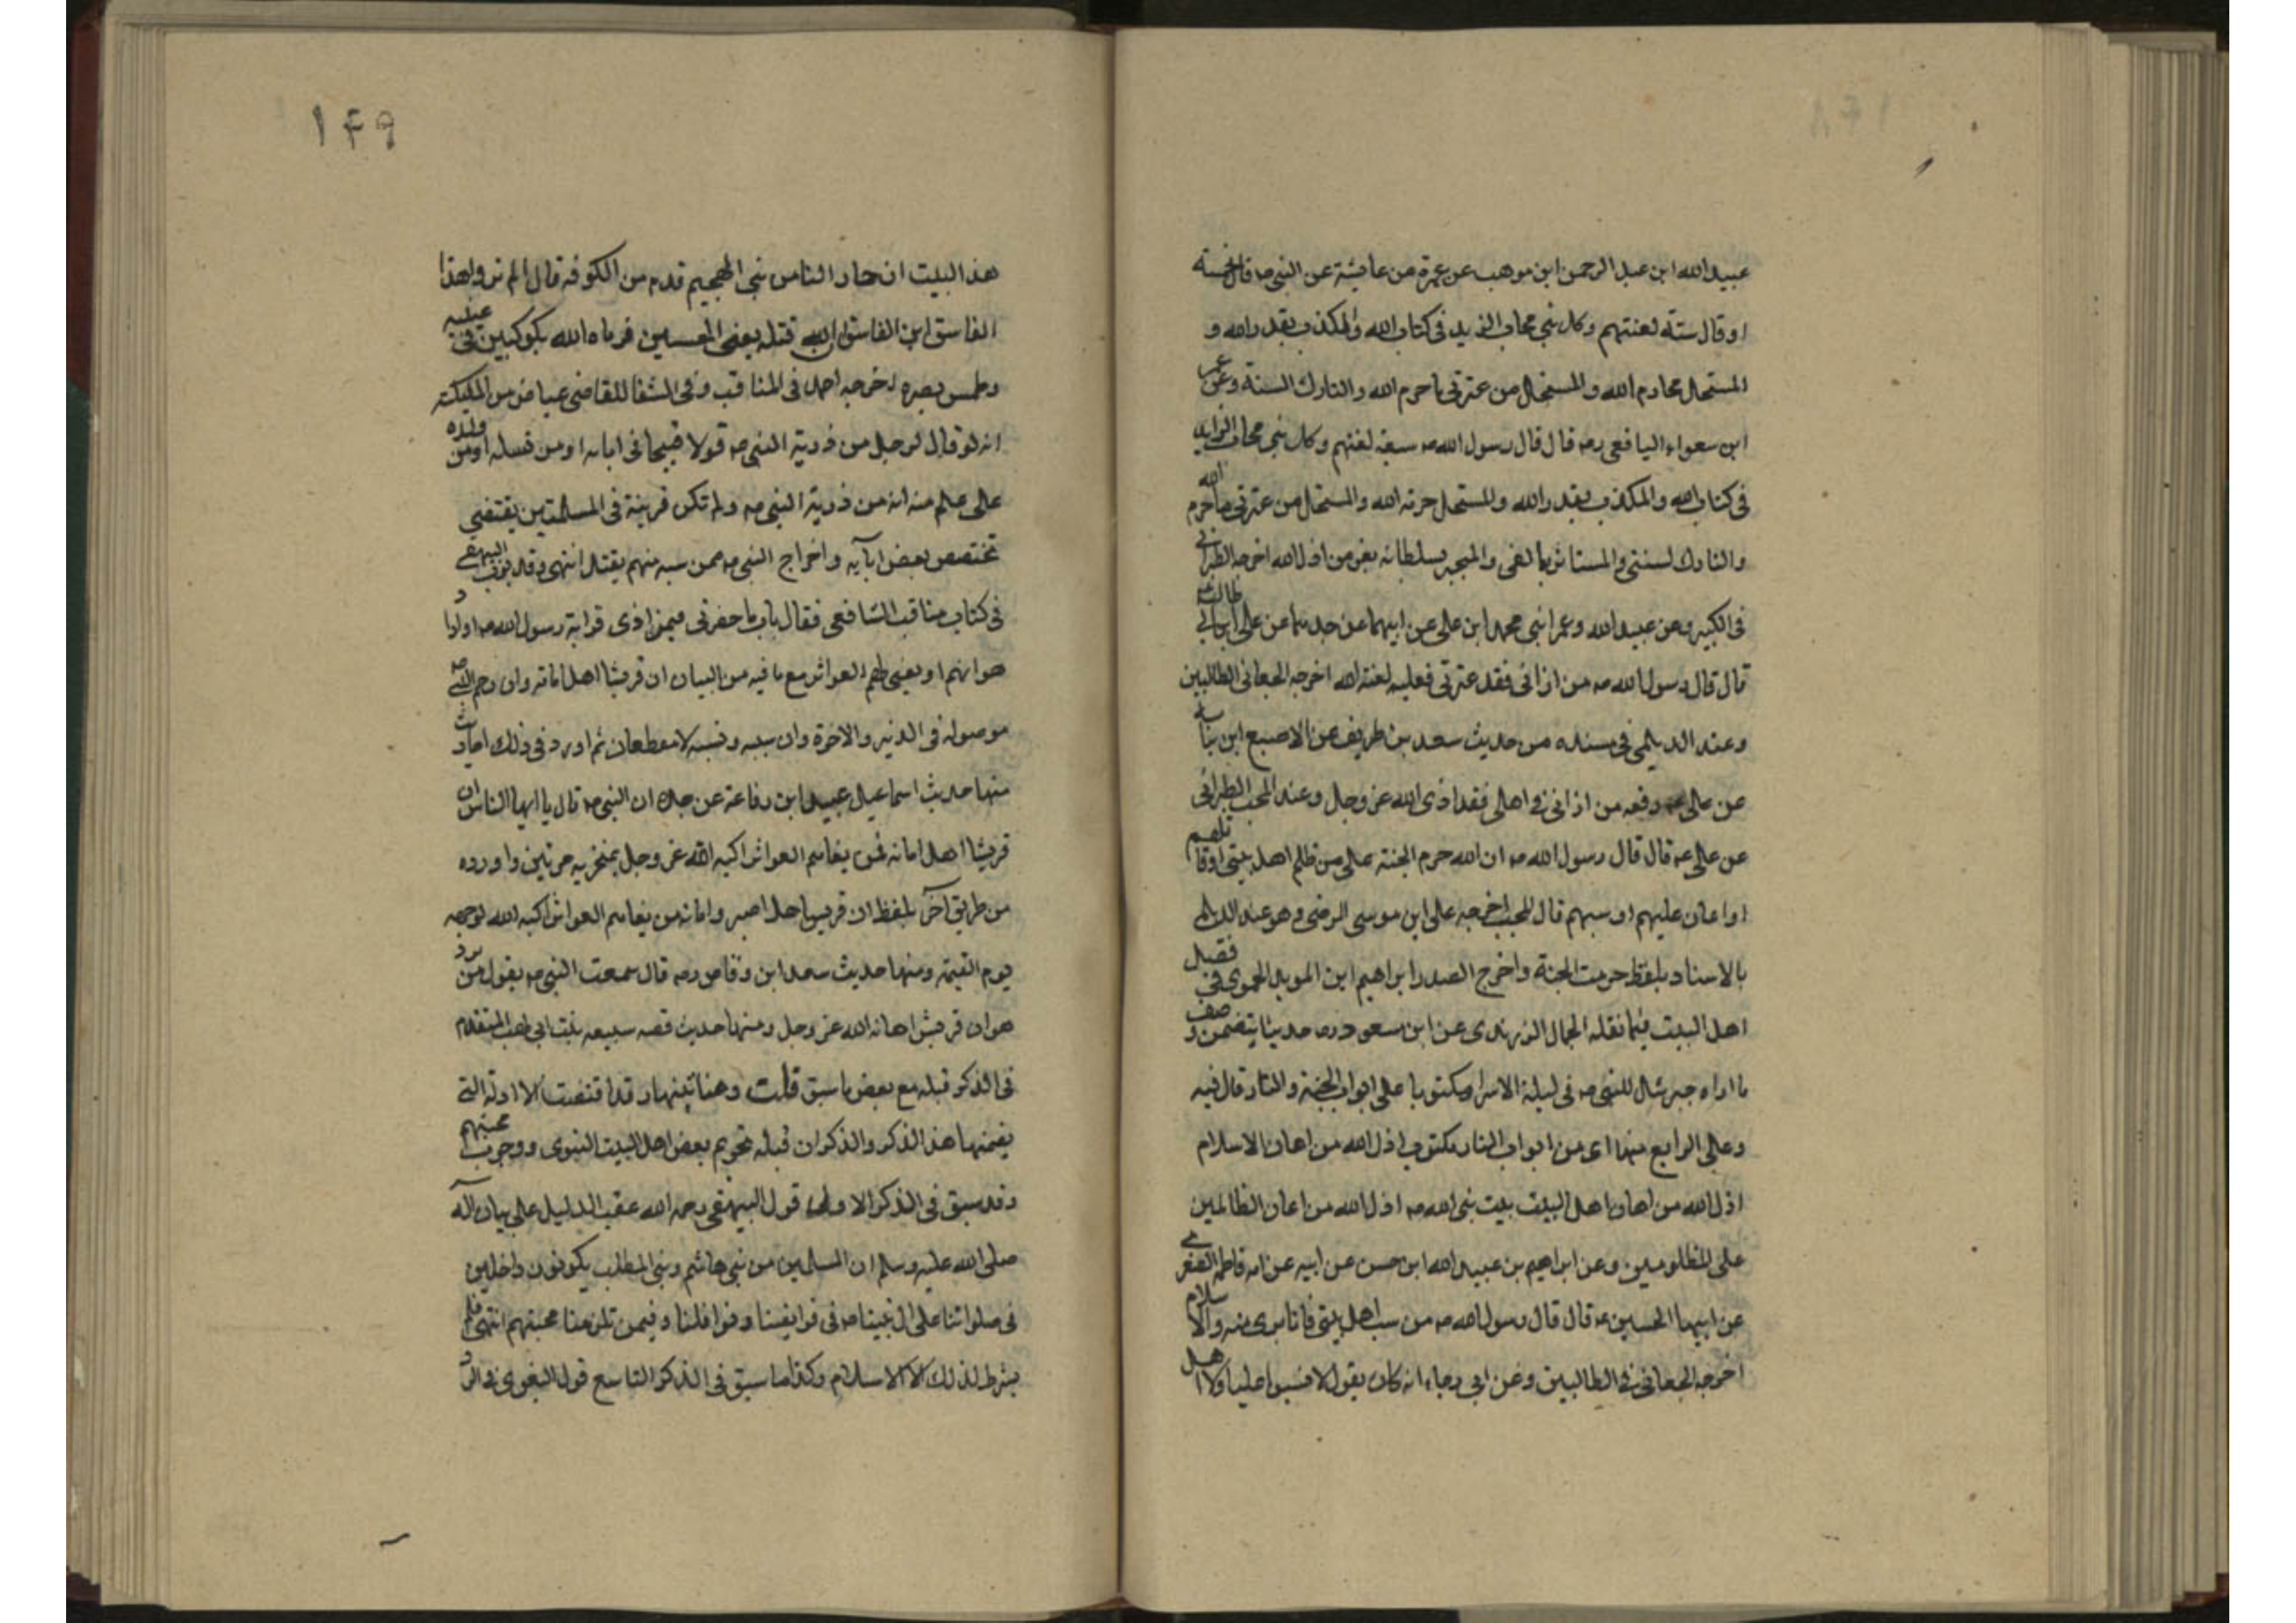 عبيد الله ابن عبد الرحمن ابن موهب عن عمرة عن عايشة عن النبي صه قال خمسة
او قال ستة لعنتهم وكل نبي مجاب الزيد في كتاب الله والمكذب بقدر الله و
المستحل محارم الله والمستحل من عترتي ما حرم الله والتارك السنة وعن عمر
ابن سعواء اليافعي رضه قال قال رسول الله صه سبعة لعنتهم وكل نبي مجاب الزايد
في كتاب الله والمكذب بقدر الله والمستحل حرمة الله والمستحل من عترتي ما حرم الله
والتارك لسنتي والمستاثر بالفى والمتجبر بسلطانه يعز من اذل الله اخرجه الطبراني
في الكبير وعن عبيد الله وعمر ابني محمد ابن علي عن ابيهما عن جدهما عن علي ابن ابي طالب عه
قال قال رسول الله صه من اذاني فقد عترتي فعليه لعنة الله اخرجه الجعابي الطالبين
وعند الديلمي في مسنده من حديث سعد بن طريف عن الاصبغ ابن نباته
عن علي عه رفعه من اذاني في اهلي فقد اذى الله عز وجل وعند المحب الطبراني
عن علي عه قال قال رسول الله صه ان الله حرم الجنة على من ظلم اهل بيتي او قاتلهم
او اعان عليهم او سبهم قال المحب اخرجه علي ابن موسى الرضى وهو عند الديلمي
بالاسناد بلفظ حرمت الجنة واخرج الصدر ابراهيم ابن المويد الحموي في فضل
اهل البيت فيما نقله الجمال الزرندى عن ابن مسعود رضه حديثا يتضمن وصف
ما اراه جبرئال للنبي صه في ليلة الاسرا مكتوبا على ابواب الجنة والنار قال فيه
وعلى الرابع منها اى من ابواب النار مكتوب اذل الله من اهان الاسلام
اذل الله من اهان اهل البيت بيت نبى الله صه اذل الله من اعان الظالمين
على المظلومين وعن ابراهيم بن عبيد الله ابن حسن عن ابيه عن امه فاطمه الصغرى
عن ابيها الحسين عه قال قال رسول الله صه من سب اهل بيتي فانا برى منه والاسلام
اخرجه الجعابي في الطالبين وعن ابى رجاء انه كان يقول لا تسبوا عليا ولا اهل
١٤٩
هذا البيت ان جار الناس بني الهجيم قدم من الكوفه قال الم تروا هذا
الفاسق ابن الفاسق ان الله قتله يعني الحسين فرماه الله بكوكبين في عينيه
وطمس بصره اخرجه احمد في المناقب وفي الشفا للقاضي عياض من
انه لو قال لرجل من ذرية النبي صه قولا قبيحا في ابايه او من نسله او من ولده
على علم منه انه من ذرية النبي صه ولم تكن قرينة في المسلمتين يقتضي
تختصص بعض ابآيه واخراج النبي صه ممن سبه منهم يقتل انتهى وقد بوب البيهقي
في كتاب مناقب الشافعي فقال باب ما حضرني فيمن اذى قرابة رسول الله صه او اراد
هوانهم او بغى لهم العواثر مع ما فيه من البيان ان قريشا اهل امانه وان رحم النبي صه
موصوله في الدنيا والاخرة وان سببه ونسبه لا ينقطعان ثم اورد في ذلك احاديث
منها حديث اسماعيل عبيد ابن رفاعة عن جده ان النبي صه قال يا ايها الناس ان
قريشا اهل امانه فمن بغاهم العواثر اكبه الله عز وجل بمنخريه مرتين واورده
من طريق آخر بلفظ ان قريشا اهل اصبر وامانه من بغاهم العواثر اكبه الله لوجهه
يوم القيمة ومنها حديث سعد ابن وقاص رضه قال سمعت النبي صه يقول من يرد
هوان قريش اهانه الله عز وجل ومنها حديث قصه سبيعه بنت ابي لهب المتقدم
في الذكر قبله مع بعض ما سبق قلت وهنا تنبيهان قد اقتضت الا ادلة التي
يضمنها هذا الذكر والذكران قبله تحريم بعض اهل البيت النبوى ووجوب محبتهم
وقد سبق في الذكر الاول قول البيهقي رحمه الله عقب الدليل على بيان آله
صلى الله عليه وسلم ان المسلمين من بني هاشم وبني المطلب يكونون داخلين
في صلواتنا على ال نبينا صه في فرايضنا ونوافلنا وفيمن تلزمنا محبتهم انتهى فلم
يشرط لذلك الا الاسلام وكذا ما سبق في الذكر التاسع قول البغوى في الرد